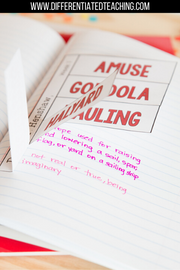 WWW.DIFFERENTIATEDTEACHING.COM
AMUSE
GO DOLA
HALYARD
AULING
rope used for raising
and lowering a sail, spar,
flag, or yard on a sailing ship
not real or true, being
imaginary